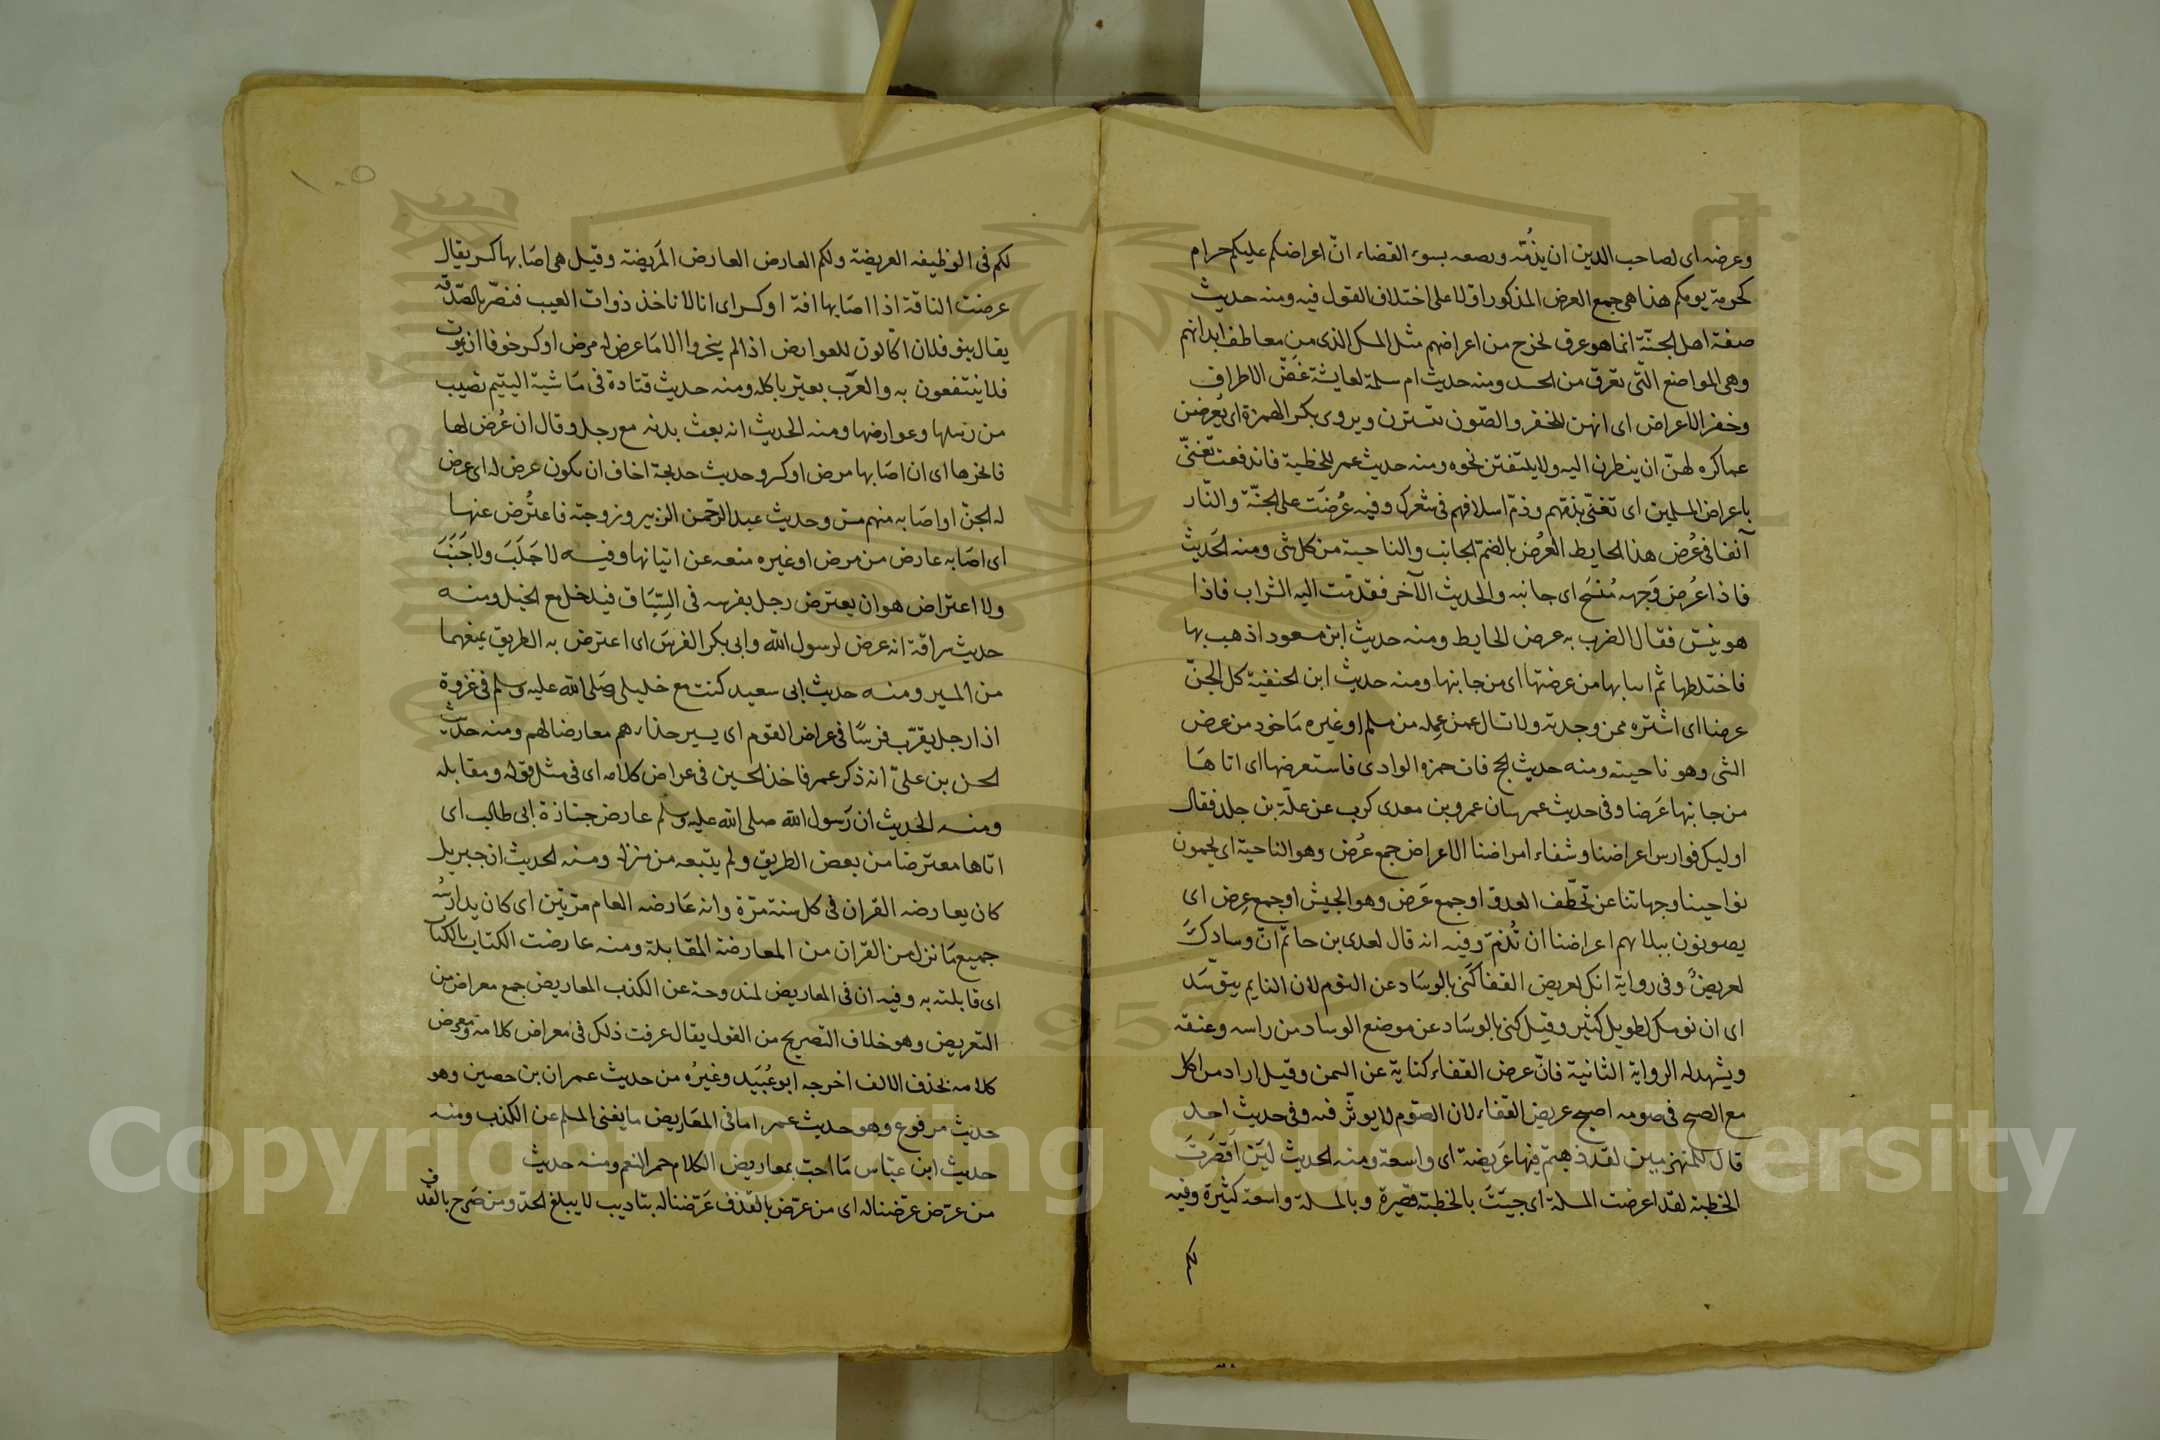 وعرضه اى لصاحب الدين ان يذمّه ويصفه بسوء القضاء انّ اعراضكم عليكم حرام
كحرمة يومكم هذا هى جمع العرض المذكور اوّلا على اختلاف القول فيه ومنه حديث
صفة اهل الجنّة انما هو عرق يخرج من اعراضهم مثل المسك الذى من معاطف ابدانهم
وهى المواضع الّتى تعرق من الجسد ومنه حديث ام سلمة لعايشة غضّ الاطراف
وخفر الاعراض اى انهن للخفر والصّون تتسترن ويروى بكسر الهمزة اى يُعرضن
عما كره لهنّ ان ينظرن اليه ولا يلتفتن نحوه ومنه حديث عمر للحطيئة فاندفعت تغنّى
باعراض المسلمين اى تغنّى بذمّهم وذمّ اسلافهم فى شعرك وفيه عُرضَت علىّ الجنّة والنّار
آنفا فى عُرض هذا الحايط العرُض بالضمّ الجانب والناحية من كل شى ومنه الحَديث
فاذا عُرض وَجهه مُنسَح اى جانبه والحديث الآخر فقدّمت اليه الشراب فاذا
هو ينشّ فقال اضرب به عرض الحايط ومنه حديث ابن مسعود اذهب بها
فاختلطها ثم اتنا بها من عرضتها اى من جانبها ومنه حديث ابن الحنفية كل الجبنّ
عرضا اى اشتره ممن وجدته ولا تسال عمن عمله من مسلم او غيره مَاخوذ من عرض
الشى وهو ناحيته ومنه حديث الحج فاتى حمزة الوادى فاستعرضها اى اتاهَا
من جانبها عَرضا وفى حديث عمر سال عمرو بن معدى كرب عن علّة بن جلد فقال
اوليك فوارس اعراضنا وشفاء امراضنا الاعراض جمع عُرض وهو الناحية اى يحمون
نواحينا وجهاتنا عن تخطّف العدوّ او جمع عَرض وهو الجيش او جمع عِرض اى
يصونون ببلائهم اعراضنا ان تُذمّ وفيه انه قال لعدى بن حاتم انّ وسادكَ
لعريضٌ وفى رواية انك لعريض القفا كَنى بالوسَاد عن النوم لان النايم يتوسّد
اى ان نومك لطويل كثير وقيل كنى بالوسَاد عن موضع الوساد من راسه وعنقه
ويشهد له الرواية الثانية فانّ عرض القفاء كناية عن السمن وقيل اراد من اكل
مع الصبح فى صومه اصبح عريض القفاء لان الصّوم لا يوثّر فيه وفى حديث احد
قال للمنهزمين لقد ذهبتم فيها عَريضة اى واسعة ومنه الحديث ليَن اَقصَرتَ
الخطبة لقد اعرضت المسلة اى جيَتَ بالخطبة قصيرة وبالمسلة واسعة كثيرة وفيه
لكم
١٠٥
لكم فى الوظيفه العريضة ولكم العارض العارض المَريضة وقيل هى اصَابها كسر يقال
عرضت الناقة اذا اصَابها افة او كسر اى انا لا ناخذ ذوات العيب فنضّر بالصّدقة
يقال بنو فلان اكّالون للعوارض اذا لم ينحروا الا مَا عرض له مرض او كسر خوفا ان يموت
فلا ينتفعون به والعرَب بعيّر باكله ومنه حديث قتادة فى مَاشية اليتيم تصيب
من رسلها وعوارضها ومنه الحديث انه بعث بدنه مع رجل وقال ان عُرض لها
فانحرها اى ان اصَابها مرض او كسر وحديث خديجة اخاف ان يكون عرض له اى عرض
له الجنّ او اصَابه منهم مسّ وحديث عبد الرّحمن الزبير وزوجته فاعتُرض عنها
اى اصَابه عارض من مرض او غيره منعه عن اتيانها وفيه لا جَلَبَ ولا جَنَبَ
ولا اعتراض هو ان يعترض رجل بفرسه فى السِّبَاق فيدخل مع الخيل ومنه
حديث سراقة انه عرض لرسول الله وابى بكر الفرسَ اى اعترض به الطريق يمنعهما
من المسير ومنه حديث ابى سعيد كنت مع خليلى صَلى الله عليه وسلم فى غزوة
اذا رجل يقرّب فرسًا فى عراض القوم اى يسير حذاءهم معارضا لهم ومنه حديث
الحسن بن علىّ انه ذكر عمر فاخذ الحسين فى عراض كلامه اى فى مثل قوله ومقابله
ومنه الحديث ان رَسول الله صلى الله عليه وسلم عارض جنازة ابى طالب اى
اتاها معترضا من بعض الطريق ولم يتبعه من منزله ومنه الحديث ان جبريل
كان يعارضه القران فى كل سنة مرّة وانه عَارضه العام مرّتين اى كان يدارسُه
جميع مَا نزل من القران من المعارضة المقابلة ومنه عارضت الكتاب بالكتاب
اى قابلته به وفيه ان فى المعاريض لمندوحة عن الكذب المعاريض جمع معراض من
التعريض وهو خلاف التصريح من القول يقال عرفت ذلك فى معراض كلامه ومعرض
كلامه بحذف الالف اخرجه ابو عُبَيد وغيرُه من حديث عمران بن حصين وهو
حديث مرفوع وهو حديث عمر اما فى المعَاريض ما يغنى المسلم عن الكذب ومنه
حديث ابن عبّاس مَا احبّ بمعاريض الكلام حمر النعم ومنه حديث
من عرّض عرّضنا له اى من عرّض بالقذف عَرّضنا له بتاديب لا يبلغ الحدّ ومن صَرح بالقذف
Copyright © King Saud University
1957